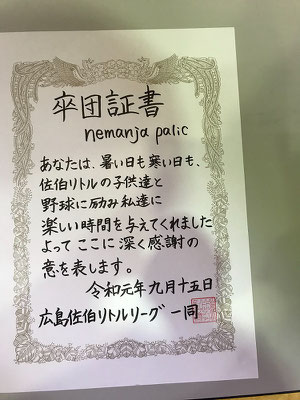 卒団証書
nemanja palic
あなたは、暑い日も寒い日も、
佐伯リトルの子供達と
野球に励み私達に
楽しい時間を与えてくれました
よって ここに深く感謝の
意を表します。
令和元年九月十五日
広島佐伯リトルリーグ 一同